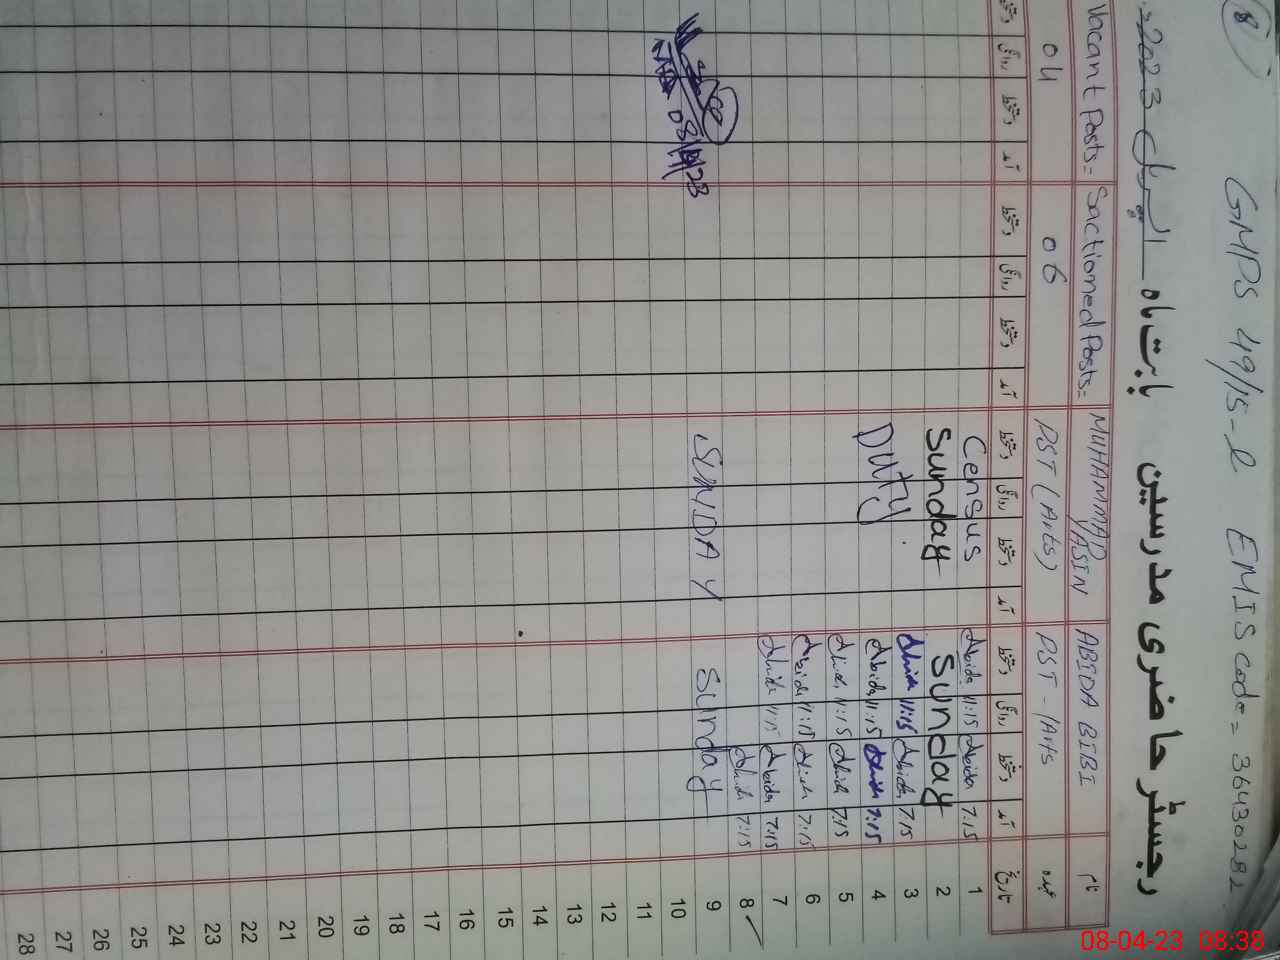 8
GMPS 49/15-L EMIS code = 36430282
رجسٹر حاضری مدرسین بابت ماہ اپریل 2023
نام ABIDA BIBI MUHAMMAD YASIN Sactioned Posts= Vacant Posts=
عہدہ PST - Arts PST (Arts) 06 04
تاریخ آمد دستخط روانگی دستخط آمد دستخط روانگی دستخط آمد دستخط روانگی دستخط آمد دستخط روانگی دستخط
1 7.15 Abida 11:15 Abida Census
2 Sunday Sunday
3 7.15 Abida 11:15 Abida
4 7:15 Abida 11:15 Abida Duty
5 7.15 Abida 11:15 Abida
6 7:15 Abida 11:15 Abida
7 7:15 Abida 11:15 Abida
8 7:15 Abida
9 Sunday SUNDAY
10
11
12
13
14
15
16
17
18
19
20
21
22
23
24
25
26
27
28
08-04-23 08:38